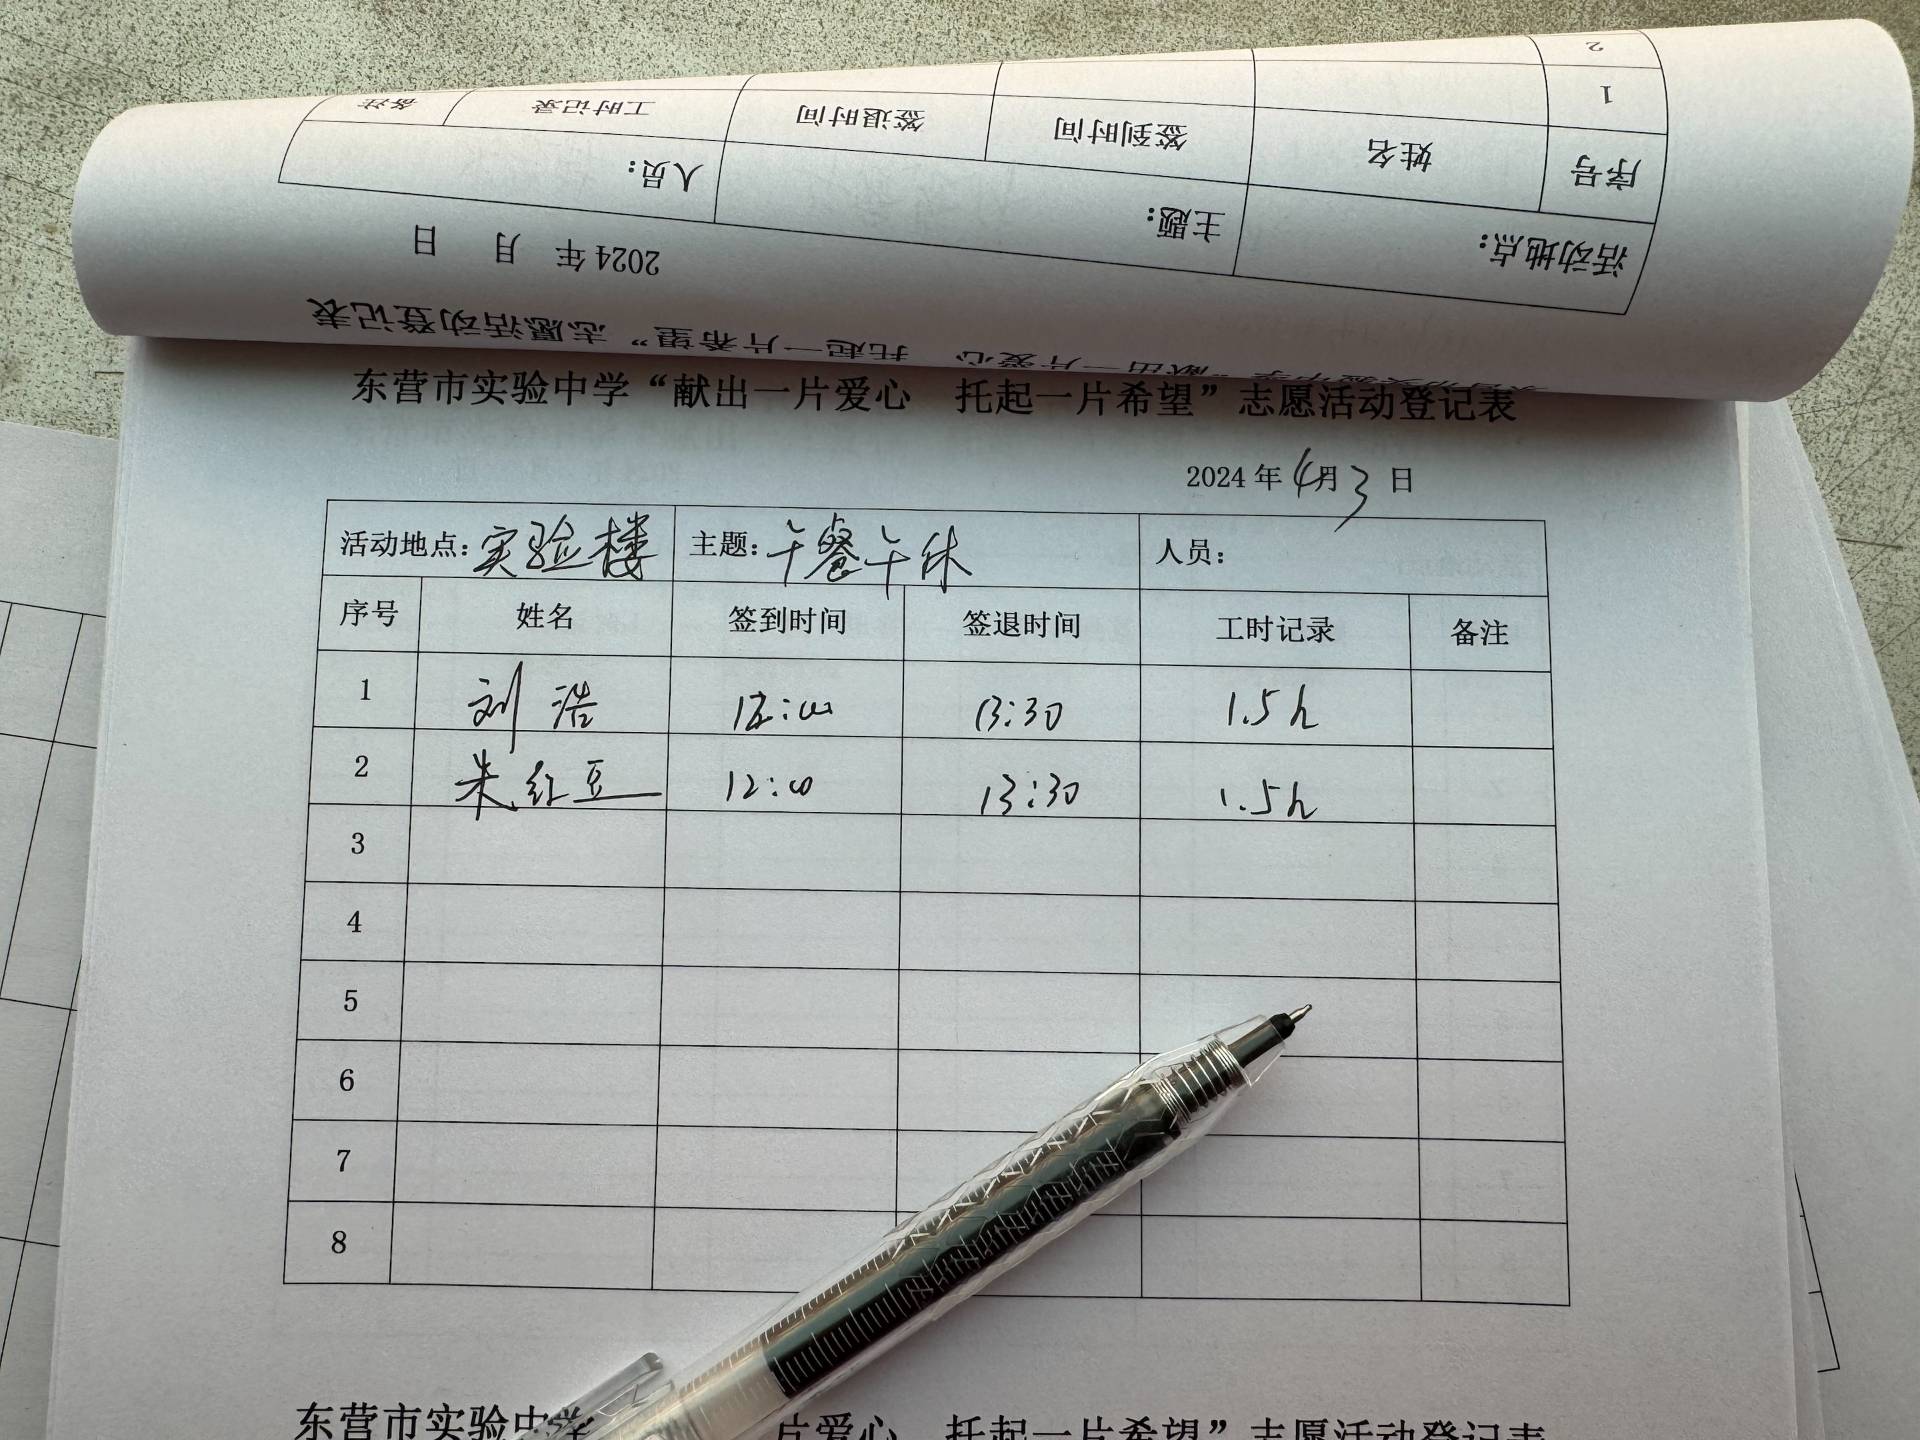 2
1
备注 工时记录 签退时间 签到时间 姓名 序号
人员: 主题: 活动地点:
2024 年 月 日
片爱心 托起一片希望”志愿活动登记表
东营市实验中学“献出一片爱心 托起一片希望”志愿活动登记表
2024 年 4月 3 日
活动地点: 实验楼 主题: 午餐午休 人员:
序号 姓名 签到时间 签退时间 工时记录 备注
1 刘浩 12:00 13:30 1.5h
2 朱红豆 12:00 13:30 1.5h
3
4
5
6
7
8
东营市实验中学 片爱心 托起一片希望”志愿活动登记表